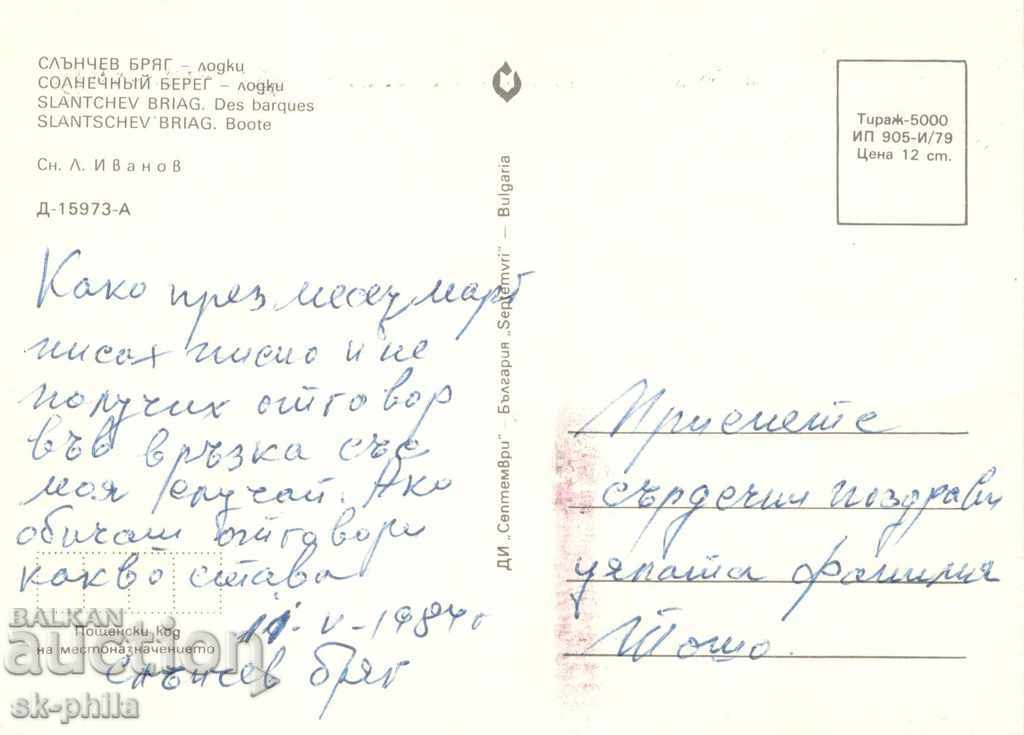 СЛЪНЧЕВ БРЯГ – лодки
СОЛНЕЧНЫЙ БЕРЕГ – лодки
SLANTCHEV BRIAG. Des barques
SLANTSCHEV BRIAG. Boote
Сн. Л. Иванов
Д-15973-А
Тираж-5000
ИП 905-И/79
Цена 12 ст.
ДИ „Септември" – България „Septemvri" – Bulgaria
Како през месец март
писах писмо и не
получих отговор
във връзка със
моя случай. Ако
обичаш отговори
какво става
11-V-1984г
Слънчев бряг
Пощенски код
на местоназначението
Приемете
сърдечни поздрави
цялата фамилия
Тошо.
BALKAN
auction
sk-phila